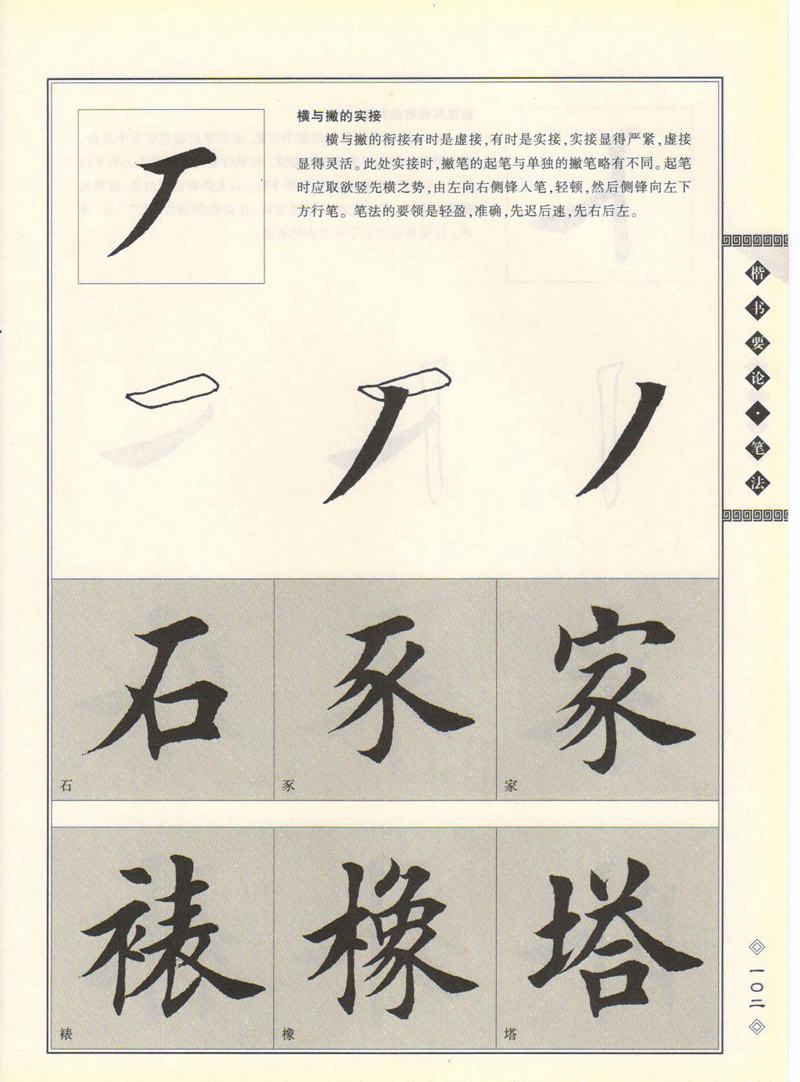 横与撇的实接
横与撇的衔接有时是虚接，有时是实接，实接显得严紧，虚接
显得灵活。此处实接时，撇笔的起笔与单独的撇笔略有不同。起笔
时应取欲竖先横之势，由左向右侧锋入笔，轻顿，然后侧锋向左下
方行笔。笔法的要领是轻盈，准确，先迟后速，先右后左。
楷书要论·笔法
石 豕 家
石 豕 家
裱 橡 塔
裱 橡 塔
一〇二